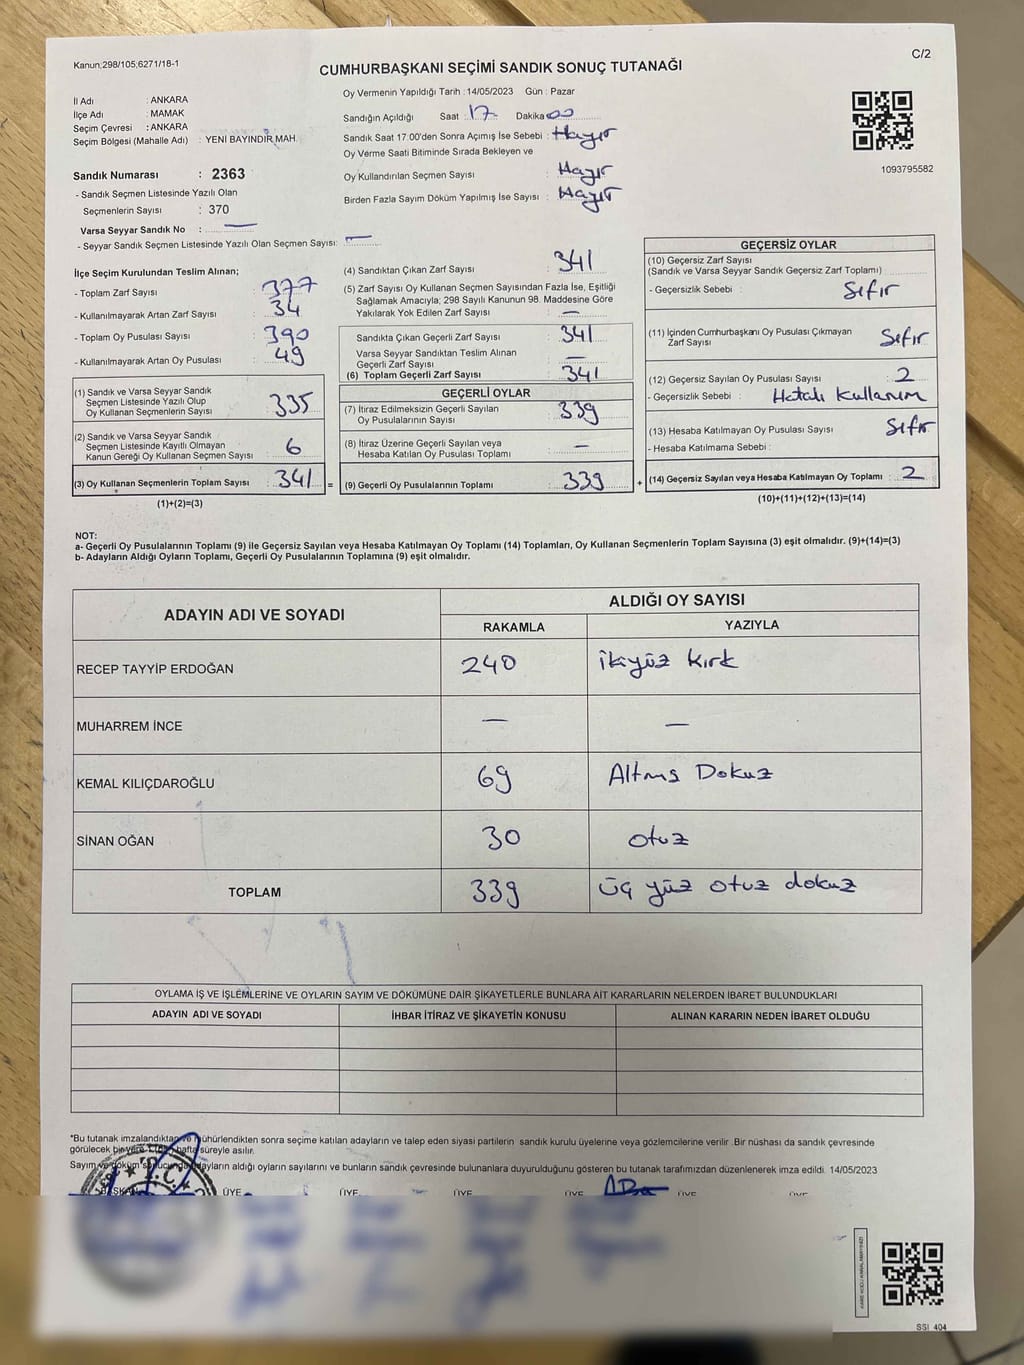 Kanun;298/105;6271/18-1
C/2
CUMHURBAŞKANI SEÇİMİ SANDIK SONUÇ TUTANAĞI
İl Adı : ANKARA
İlçe Adı : MAMAK
Seçim Çevresi : ANKARA
Seçim Bölgesi (Mahalle Adı) : YENİ BAYINDIR MAH.
Sandık Numarası : 2363
- Sandık Seçmen Listesinde Yazılı Olan
Seçmenlerin Sayısı : 370
Varsa Seyyar Sandık No : —
- Seyyar Sandık Seçmen Listesinde Yazılı Olan Seçmen Sayısı: —
Oy Vermenin Yapıldığı Tarih :14/05/2023 Gün : Pazar
Sandığın Açıldığı Saat : 17 Dakika : 00
Sandık Saat 17.00'den Sonra Açımış İse Sebebi : Hayır
Oy Verme Saati Bitiminde Sırada Bekleyen ve
Oy Kullandırılan Seçmen Sayısı : Hayır
Birden Fazla Sayım Döküm Yapılmış İse Sayısı : Hayır
1093795582
İlçe Seçim Kurulundan Teslim Alınan;
- Toplam Zarf Sayısı : 377
- Kullanılmayarak Artan Zarf Sayısı : 34
- Toplam Oy Pusulası Sayısı : 390
- Kullanılmayarak Artan Oy Pusulası : 49
(1) Sandık ve Varsa Seyyar Sandık
Seçmen Listesinde Yazılı Olup
Oy Kullanan Seçmenlerin Sayısı : 335
(2) Sandık ve Varsa Seyyar Sandık
Seçmen Listesinde Kayıtlı Olmayan
Kanun Gereği Oy Kullanan Seçmen Sayısı : 6
(3) Oy Kullanan Seçmenlerin Toplam Sayısı : 341 =
(1)+(2)=(3)
(4) Sandıktan Çıkan Zarf Sayısı : 341
(5) Zarf Sayısı Oy Kullanan Seçmen Sayısından Fazla İse, Eşitliği
Sağlamak Amacıyla; 298 Sayılı Kanunun 98. Maddesine Göre
Yakılarak Yok Edilen Zarf Sayısı : —
Sandıkta Çıkan Geçerli Zarf Sayısı : 341
Varsa Seyyar Sandıktan Teslim Alınan
Geçerli Zarf Sayısı : —
(6) Toplam Geçerli Zarf Sayısı : 341
GEÇERLİ OYLAR
(7) İtiraz Edilmeksizin Geçerli Sayılan
Oy Pusulalarının Sayısı : 339
(8) İtiraz Üzerine Geçerli Sayılan veya
Hesaba Katılan Oy Pusulası Toplamı : —
(9) Geçerli Oy Pusulalarının Toplamı : 339 +
GEÇERSİZ OYLAR
(10) Geçersiz Zarf Sayısı
(Sandık ve Varsa Seyyar Sandık Geçersiz Zarf Toplamı)
- Geçersizlik Sebebi : Sıfır
(11) İçinden Cumhurbaşkanı Oy Pusulası Çıkmayan
Zarf Sayısı : Sıfır
(12) Geçersiz Sayılan Oy Pusulası Sayısı : 2
- Geçersizlik Sebebi : Hatalı Kullanım
(13) Hesaba Katılmayan Oy Pusulası Sayısı : Sıfır
- Hesaba Katılmama Sebebi :
(14) Geçersiz Sayılan veya Hesaba Katılmayan Oy Toplamı : 2
(10)+(11)+(12)+(13)=(14)
NOT:
a- Geçerli Oy Pusulalarının Toplamı (9) ile Geçersiz Sayılan veya Hesaba Katılmayan Oy Toplamı (14) Toplamları, Oy Kullanan Seçmenlerin Toplam Sayısına (3) eşit olmalıdır. (9)+(14)=(3)
b- Adayların Aldığı Oyların Toplamı, Geçerli Oy Pusulalarının Toplamına (9) eşit olmalıdır.
ADAYIN ADI VE SOYADI
ALDIĞI OY SAYISI
RAKAMLA YAZIYLA
RECEP TAYYİP ERDOĞAN 240 İkiyüz kırk
MUHARREM İNCE — —
KEMAL KILIÇDAROĞLU 69 Altmış Dokuz
SİNAN OĞAN 30 otuz
TOPLAM 339 üç yüz otuz dokuz
OYLAMA İŞ VE İŞLEMLERİNE VE OYLARIN SAYIM VE DÖKÜMÜNE DAİR ŞİKAYETLERLE BUNLARA AİT KARARLARIN NELERDEN İBARET BULUNDUKLARI
ADAYIN ADI VE SOYADI İHBAR İTİRAZ VE ŞİKAYETİN KONUSU ALINAN KARARIN NEDEN İBARET OLDUĞU
*Bu tutanak imzalandıktan ve mühürlendikten sonra seçime katılan adayların ve talep eden siyasi partilerin sandık kurulu üyelerine veya gözlemcilerine verilir .Bir nüshası da sandık çevresinde
görülecek bir yere 1 (bir) hafta süreyle asılır.
Sayım ve döküm sonucunda adayların aldığı oyların sayılarını ve bunların sandık çevresinde bulunanlara duyurulduğunu gösteren bu tutanak tarafımızdan düzenlenerek imza edildi. 14/05/2023
BAŞKAN ÜYE ÜYE ÜYE ÜYE ÜYE ÜYE
T.C.
KARE KODU KARALAMAYINIZ!
SSI 404